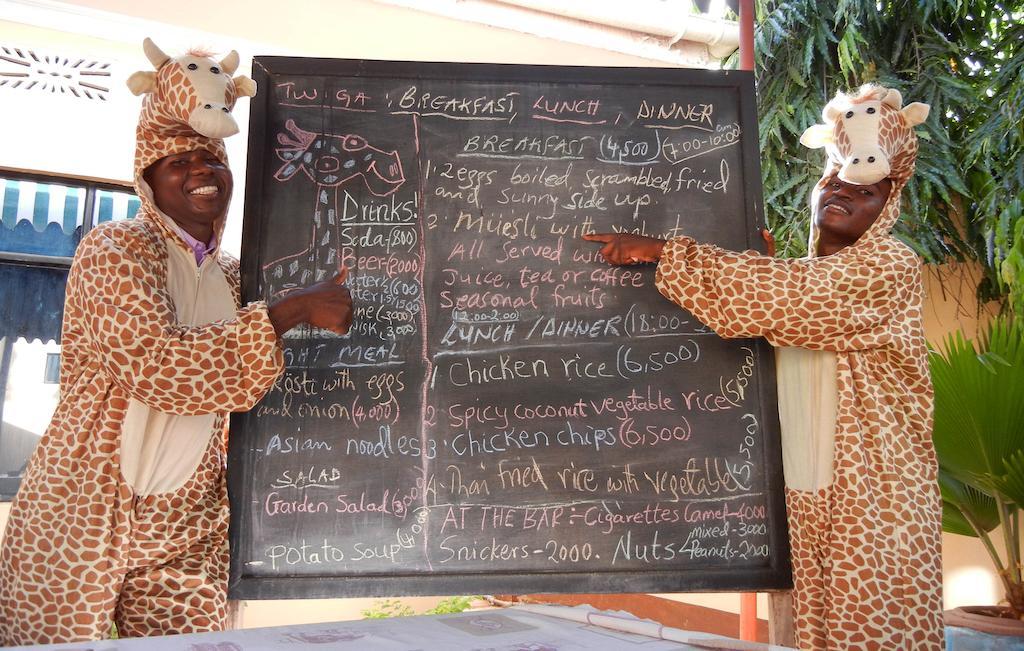 TWIGA : BREAKFAST, LUNCH, DINNER
Drinks!
Soda-(800)
Beer-(2000)
(600)
1.5/1500
(3000)
3,000
MEAL
Rösti with eggs
and onion (4,000)
- Asian noodles
SALAD
- Garden Salad
- Potato Soup
BREAKFAST (4,500) 7:00-10:00
1. 2 eggs boiled, scrambled, fried
and Sunny side up.
2. Müesli with
All Served
Juice, tea or coffee
Seasonal fruits
12:00-2:00
LUNCH / DINNER (18:00-
1 Chicken rice (6,500)
2. Spicy coconut vegetable rice (5,500)
3. Chicken chips (6,500)
4. Thai fried rice with vegetable 5,500)
AT THE BAR :- Cigarettes Camel-4000
Snickers-2000. Nuts mixed-3000
Peanuts-2000